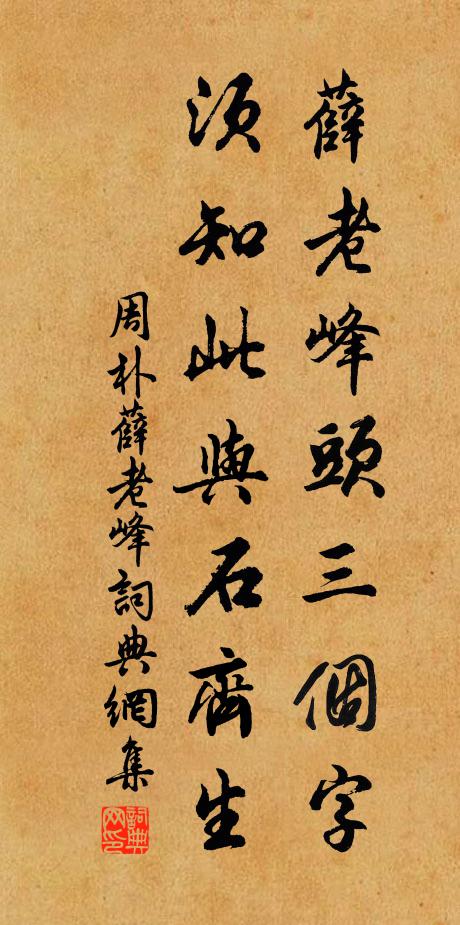 薛老峰頭三個字
須知此與石齊生
周朴薛老峰詞典網集
詞典网印